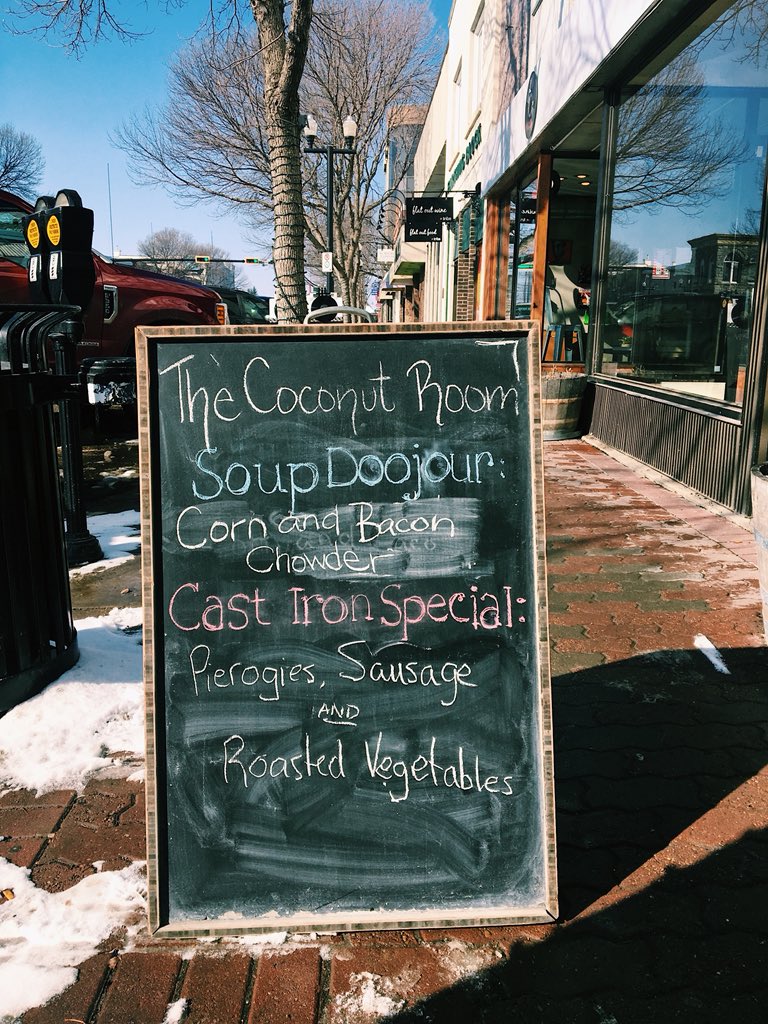 flat out wine
flat out food
The Coconut Room
Soup Doojour:
Corn and Bacon
Chowder
Cast Iron Special:
Pierogies, Sausage
AND
Roasted Vegetables